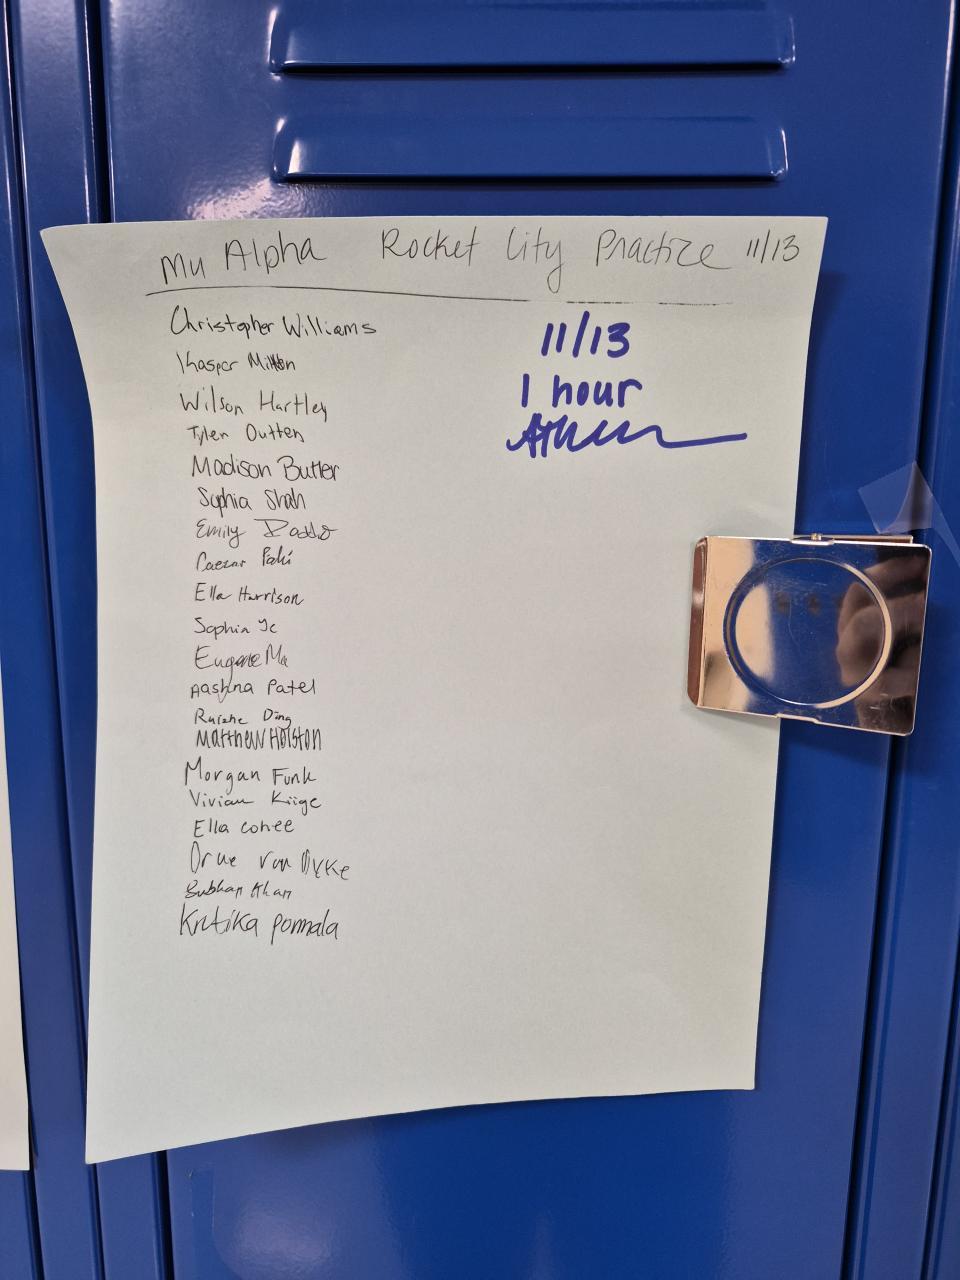 Mu Alpha Rocket City Practice 11/13
Christopher Williams
Kasper Mitton
Wilson Hartley
Tyler Outten
Madison Butler
Sophia Shah
Emily
Caesar
Ella Harrison
Sophia Ye
Eugene Ma
Aashna Patel
Ruizhe Ding
Matthew Holston
Morgan Funk
Vivian Kiige
Ella Cohee
Van Dyke
Subhan Khan
Krutika pormala
11/13
1 hour